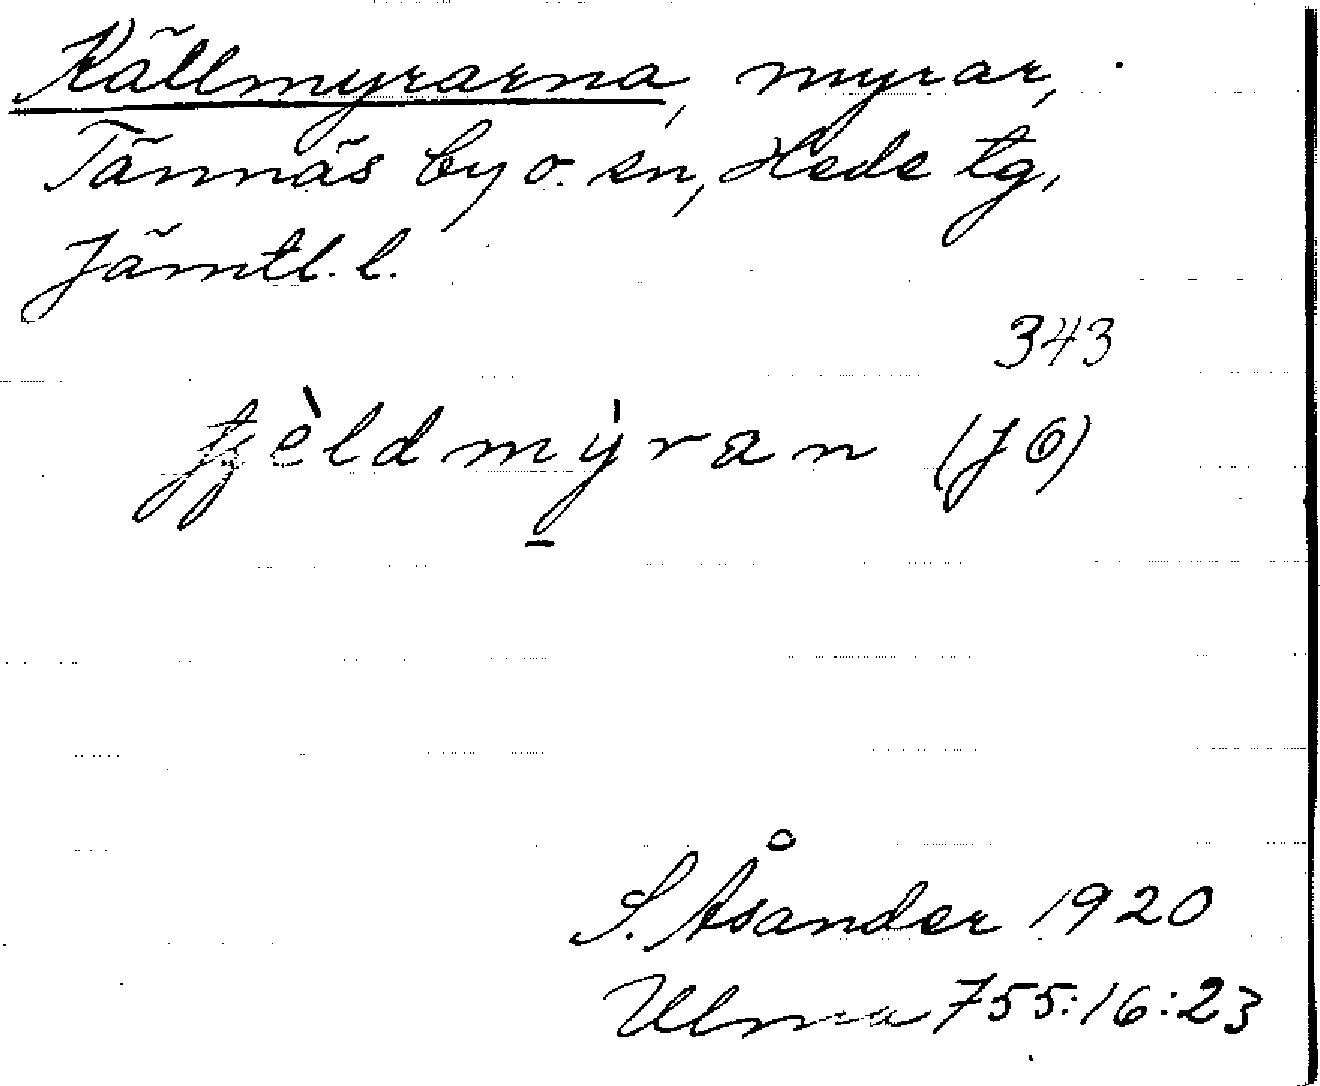 Källmyrarna, myrar,
Tännäs by o. sn, Hede tg,
Jämtl. l.
343
tjèldmỳran (JÖ)
S. Åsander 1920
Ulma 755:16:23